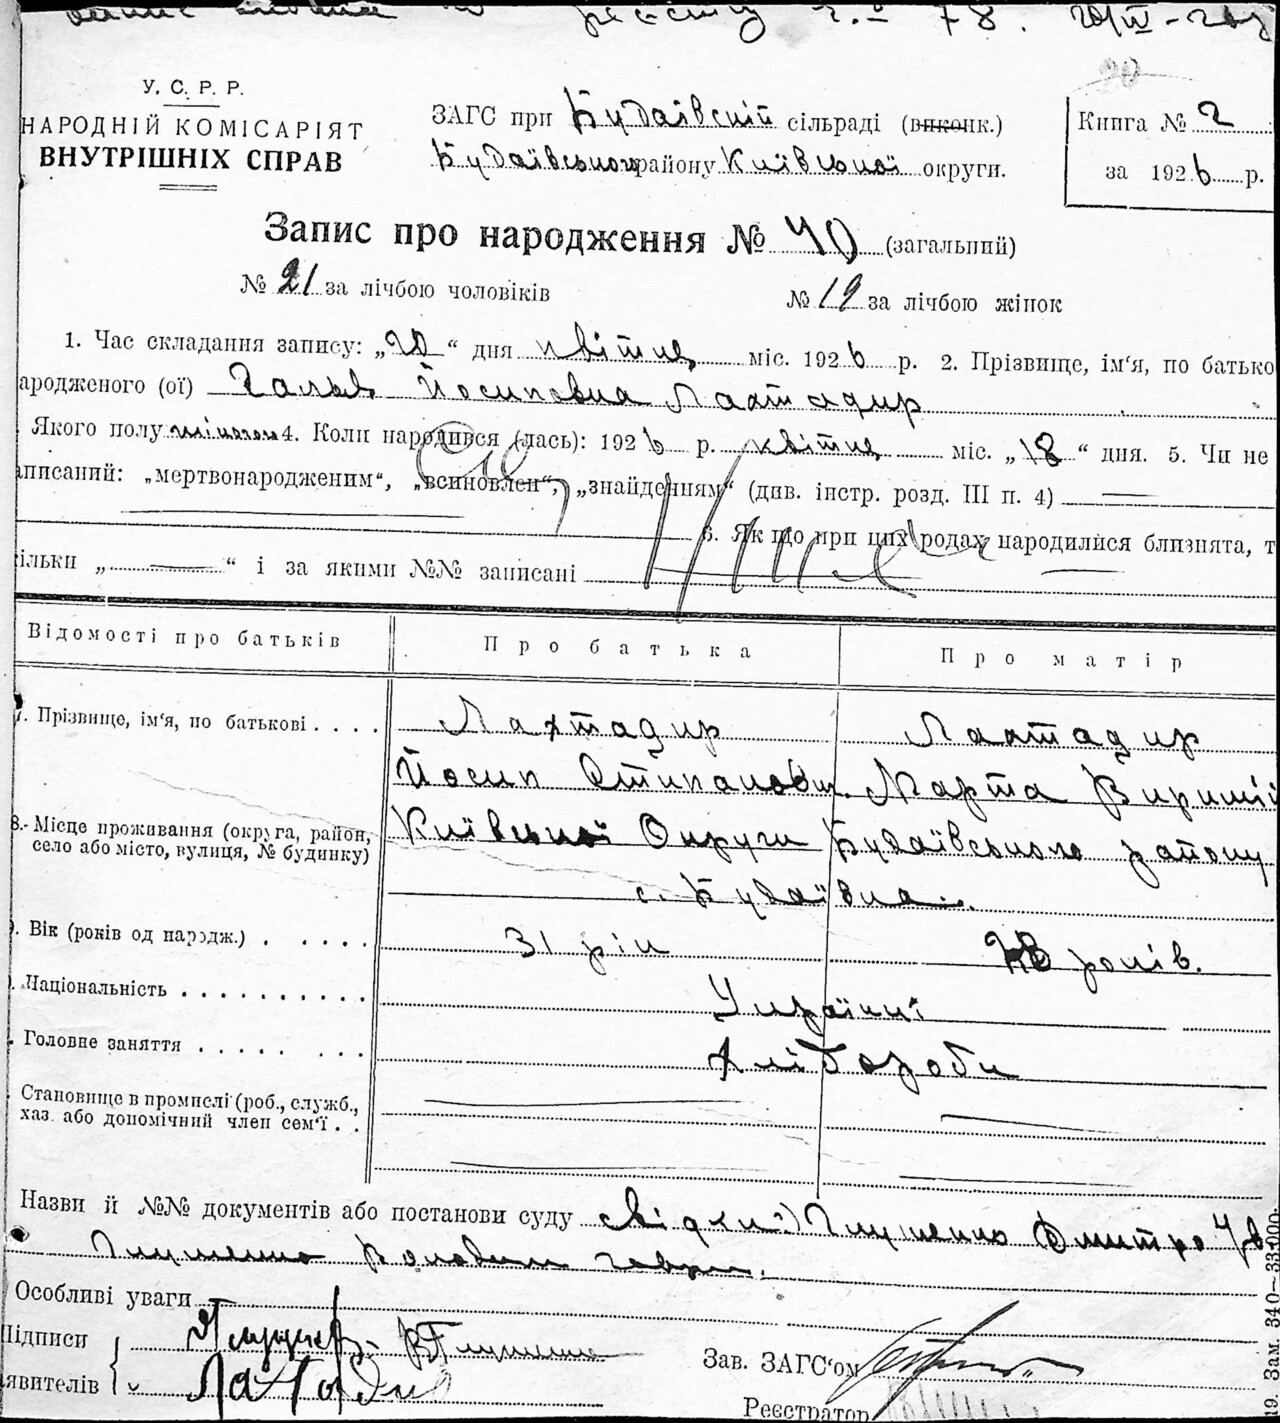 реєстру ч. 78.
У. С. Р. Р.
НАРОДНІЙ КОМІСАРІЯТ
ВНУТРІШНІХ СПРАВ
ЗАГС при Будаївській сільраді (виконк.)
Будаївського району Київської округи.
Книга № 2
за 1926 р.
Запис про народження № 40 (загальний)
№ 21 за лічбою чоловіків
№ 19 за лічбою жінок
1. Час складання запису: „20“ дня квітня міс. 1926 р. 2. Прізвище, ім‘я, по батько
ародженого (ої) Галя Йосиповна Лахтадир
Якого полу жіночого 4. Коли народився (лась): 1926 р. квітня міс. „18“ дня. 5. Чи не
аписаний: „мертвонародженим“, „всиновлен“, „знайденням“ (див. інстр. розд. III п. 4)
6. Як що при цих родах народилися близнята, т
ільки „ “ і за якими №№ записані
Відомості про батьків
Про батька
Про матір
7. Прізвище, ім‘я, по батькові
Лахтадир
Йосип Степанович.
Лахтадир
Марта
8. Місце проживання (округа, район,
село або місто, вулиця, № будинку)
Київської Округи Будаївського району
с. Будаївка.
Вік (років од народж.)
31 рік
28 років.
Національність
Українці
Головне заняття
Хлібороби
Становище в промислі (роб., служб.,
хаз. або допомічний член сем‘ї
Назви й №№ документів або постанови суду свідки: Глущенко Дмитро
Глущенко
Особливі уваги
Підписи
явителів
Зав. ЗАГС‘ом
Реєстратор
19. Зам. 340—33.000.